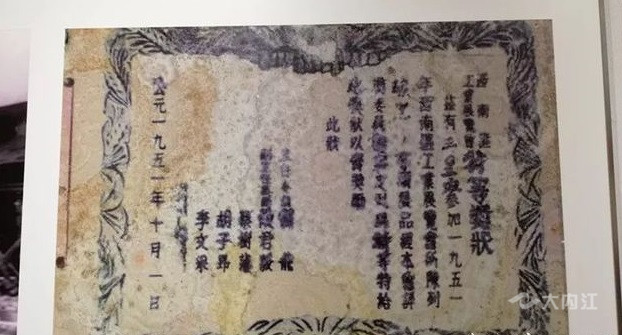 西南區
工業展覽會
特等獎狀
茲有三 參加一九五一
年西南區工業展覽會所陳列
展品經本會評
獎委員會 等特給
此獎狀以資獎勵
此狀
主任委員 龍
副主任委員段君毅
蔡樹藩
胡子昂
李文采
公元一九五一年十月一日
大内江